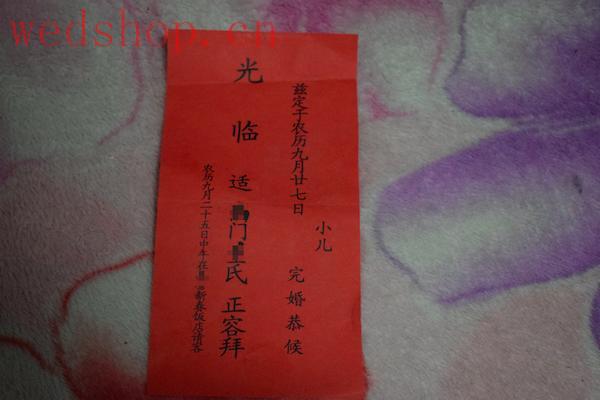 wedshop.cn
兹定于农历九月廿七日
小儿
完婚恭候
光临
适 门 氏 正容拜
农历九月二十五日中午在 新春饭店请客